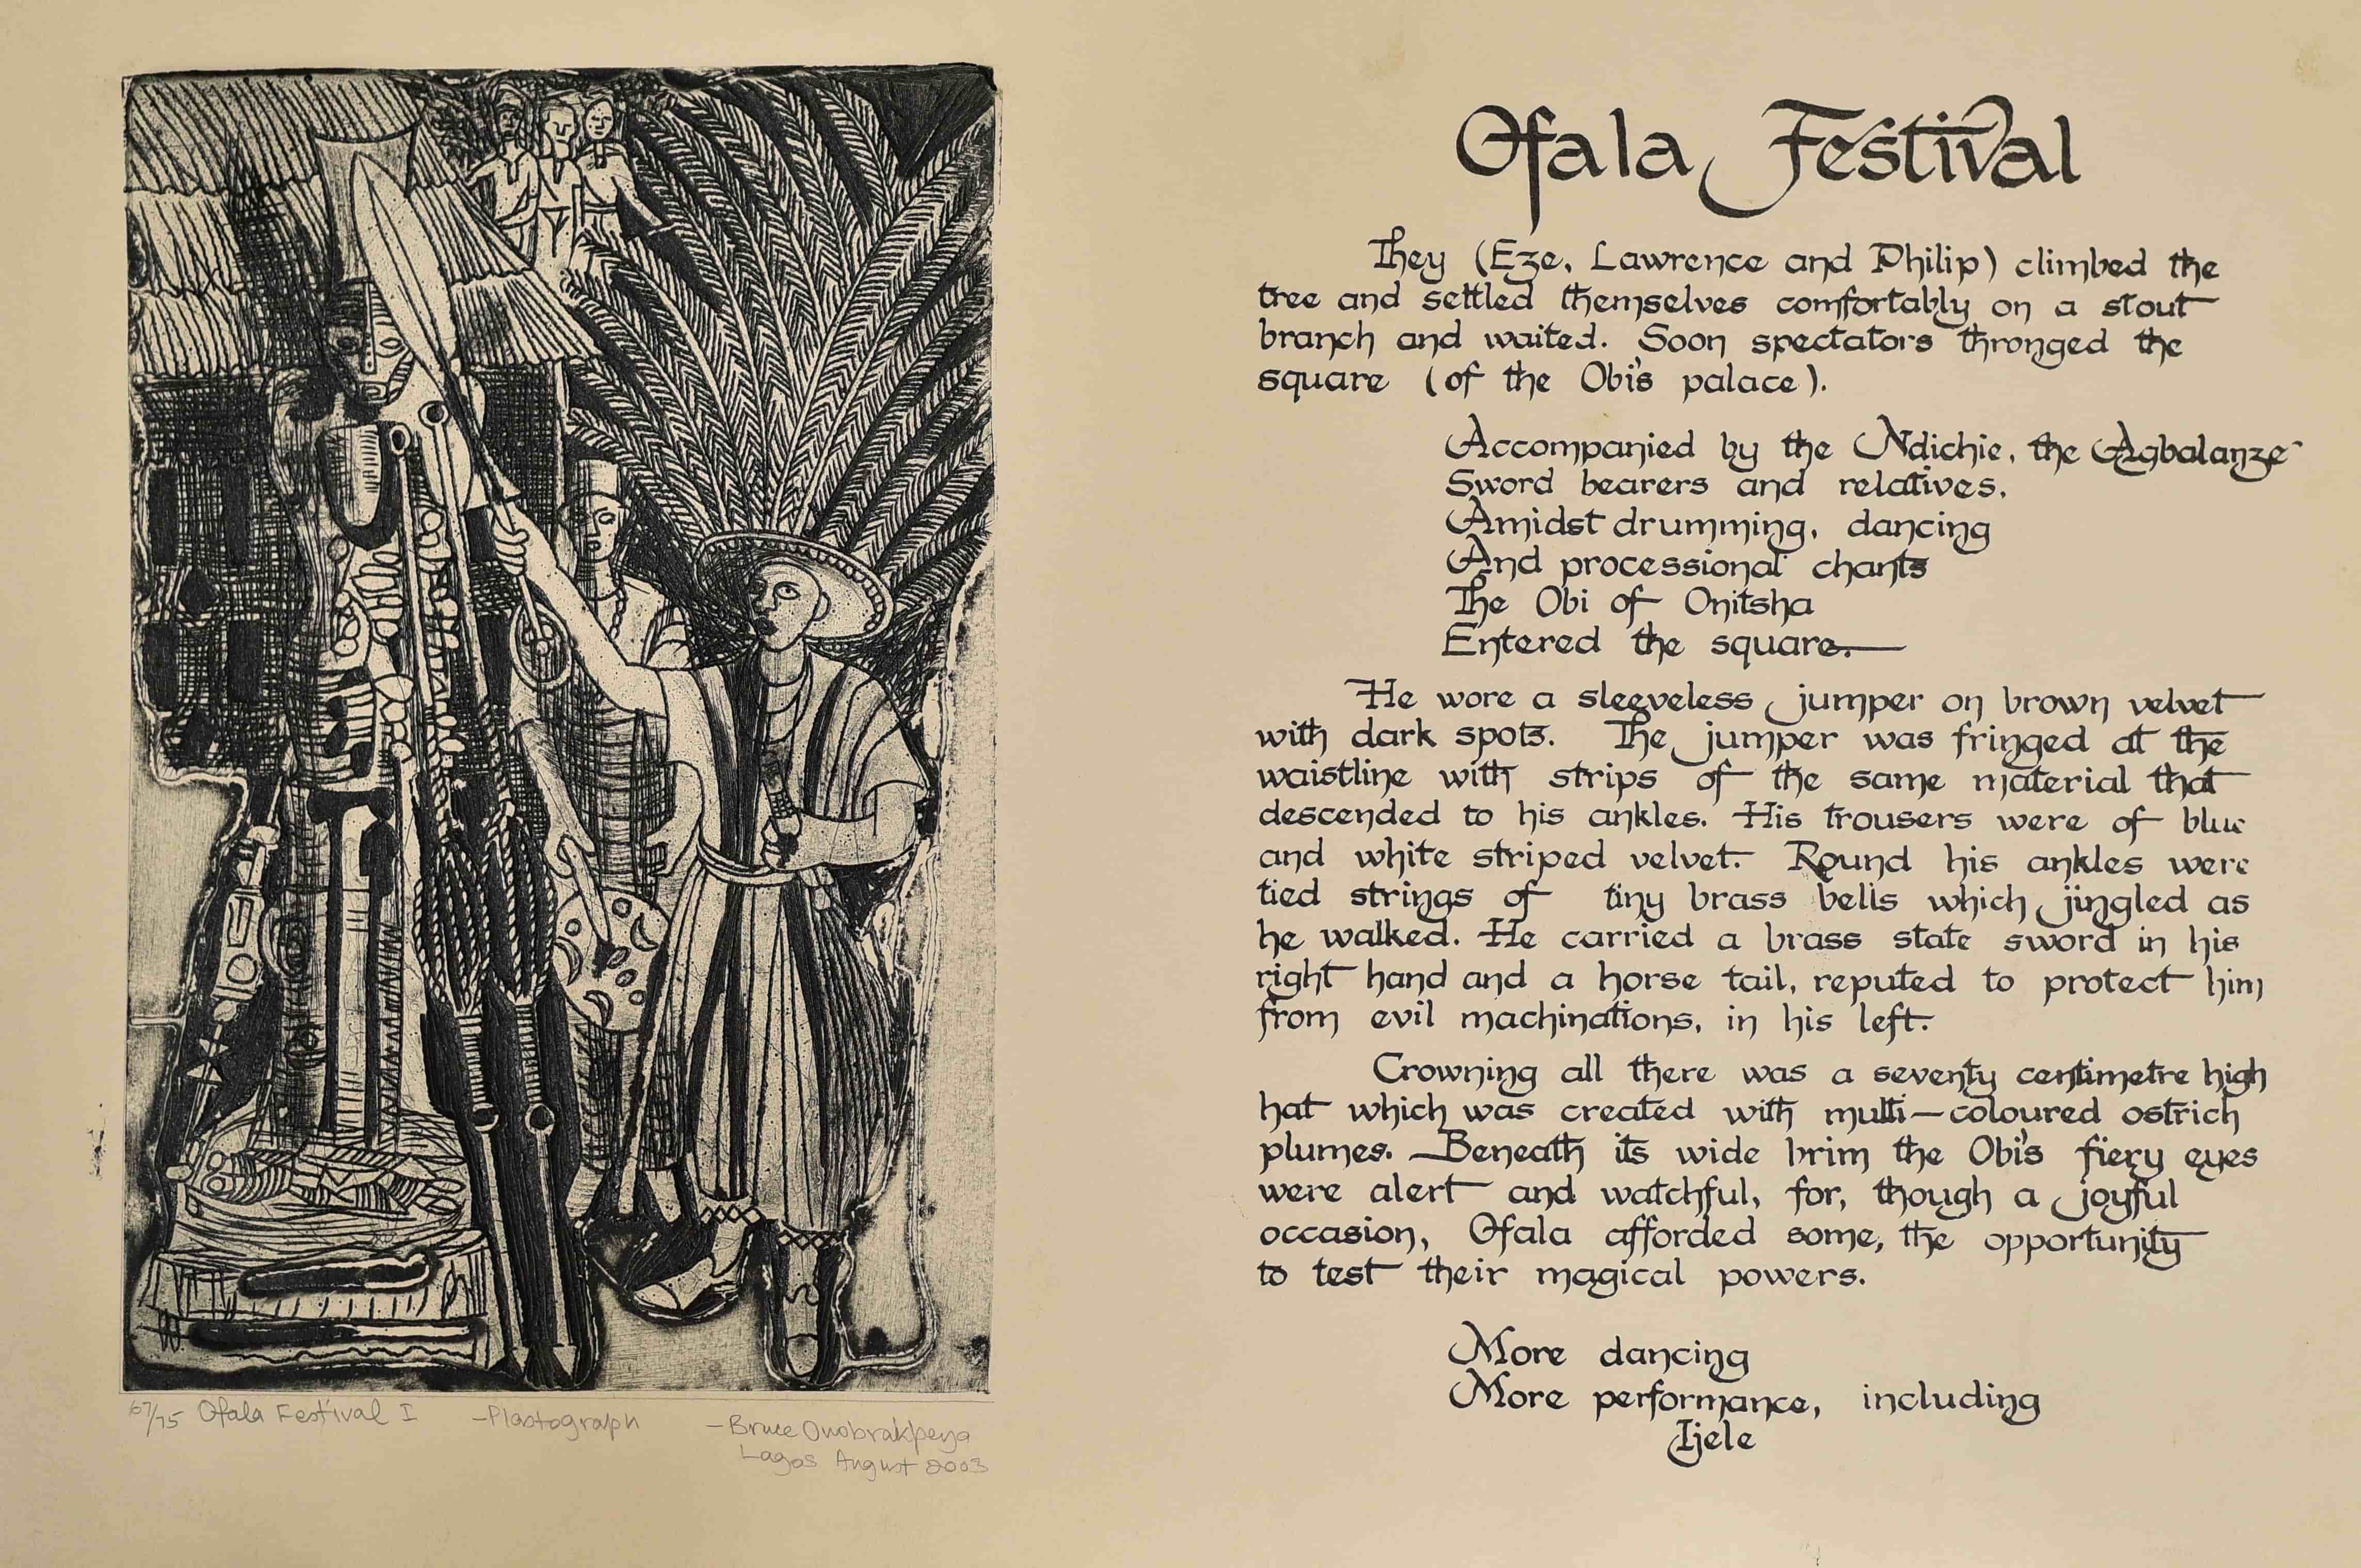 Ofala Festival
They (Eze, Lawrence and Philip) climbed the
tree and settled themselves comfortably on a stout
branch and waited. Soon spectators thronged the
square (of the Obi's palace).
Accompanied by the Ndichie, the Agbalanze
Sword bearers and relatives,
Amidst drumming, dancing
And processional chants
The Obi of Onitsha
Entered the square.
He wore a sleeveless jumper on brown velvet
with dark spots. The jumper was fringed at the
waistline with strips of the same material that
descended to his ankles. His trousers were of blue
and white striped velvet. Round his ankles were
tied strings of tiny brass bells which jingled as
he walked. He carried a brass state sword in his
right hand and a horse tail, reputed to protect him
from evil machinations, in his left.
Crowning all there was a seventy centimetre high
hat which was created with multi-coloured ostrich
plumes. Beneath its wide brim the Obi's fiery eyes
were alert and watchful, for, though a joyful
occasion, Ofala afforded some, the opportunity
to test their magical powers.
More dancing
More performance, including
Ijele
67/75 Ofala Festival I - Plastograph - Bruce Onobrakpeya
Lagos August 2003